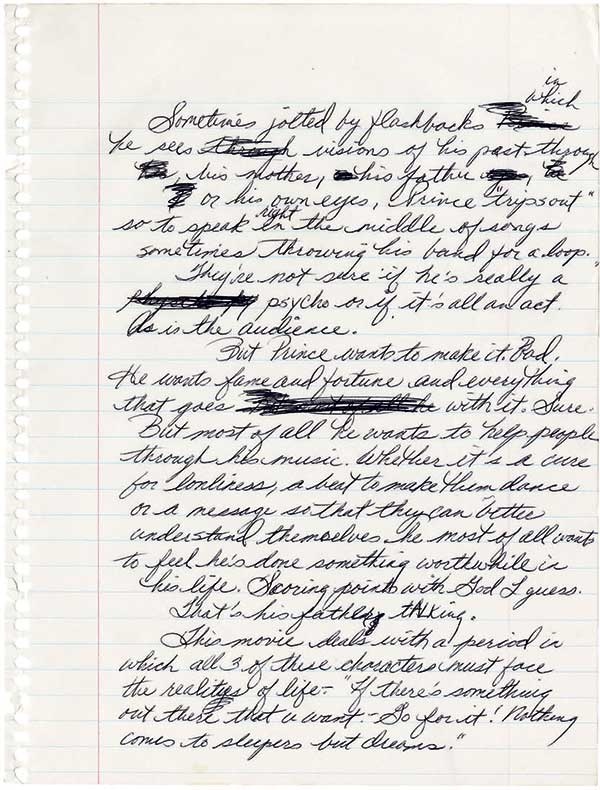 in
which
Sometimes jolted by flashbacks
he sees visions of his past through
his mother, his father
or his own eyes, Prince "trips out"
so to speak right in the middle of songs
sometimes throwing his band for a loop.
They're not sure if he's really a
psycho or if it's all an act.
As is the audience.
But Prince wants to make it. Bad.
He wants fame and fortune and everything
that goes with it. Sure.
But most of all he wants to help people
through his music. Whether it's a cure
for lonliness, a beat to make them dance
or a message so that they can better
understand themselves he most of all wants
to feel he's done something worthwhile in
his life. Scoring points with God I guess.
That's his father talking.
This movie deals with a period in
which all 3 of these characters must face
the realities of life - "If there's something
out there that u want - Go for it! Nothing
comes to sleepers but dreams."